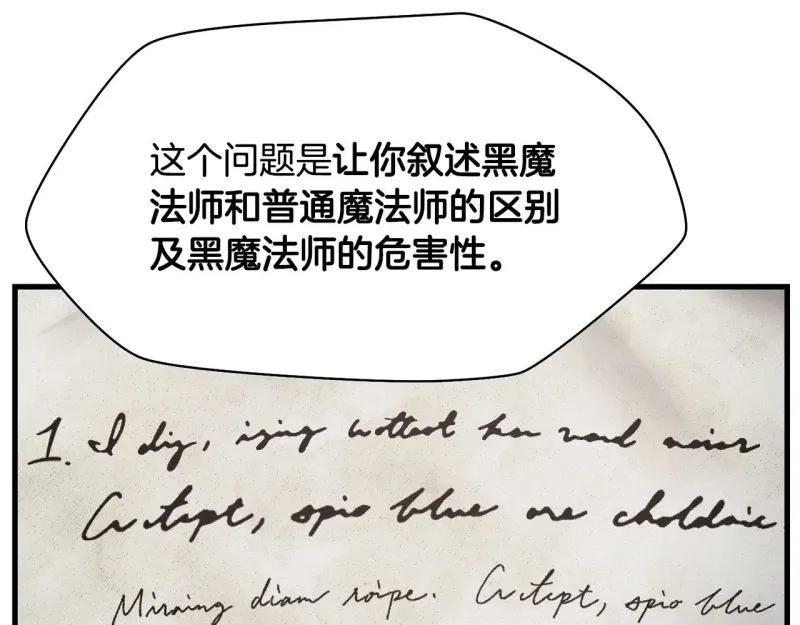 这个问题是让你叙述黑魔
法师和普通魔法师的区别
及黑魔法师的危害性。
1. I dig, ising wottest her vend
Critept, spio blue are choldaic
Miraing diam roipe. Critept, spio blue